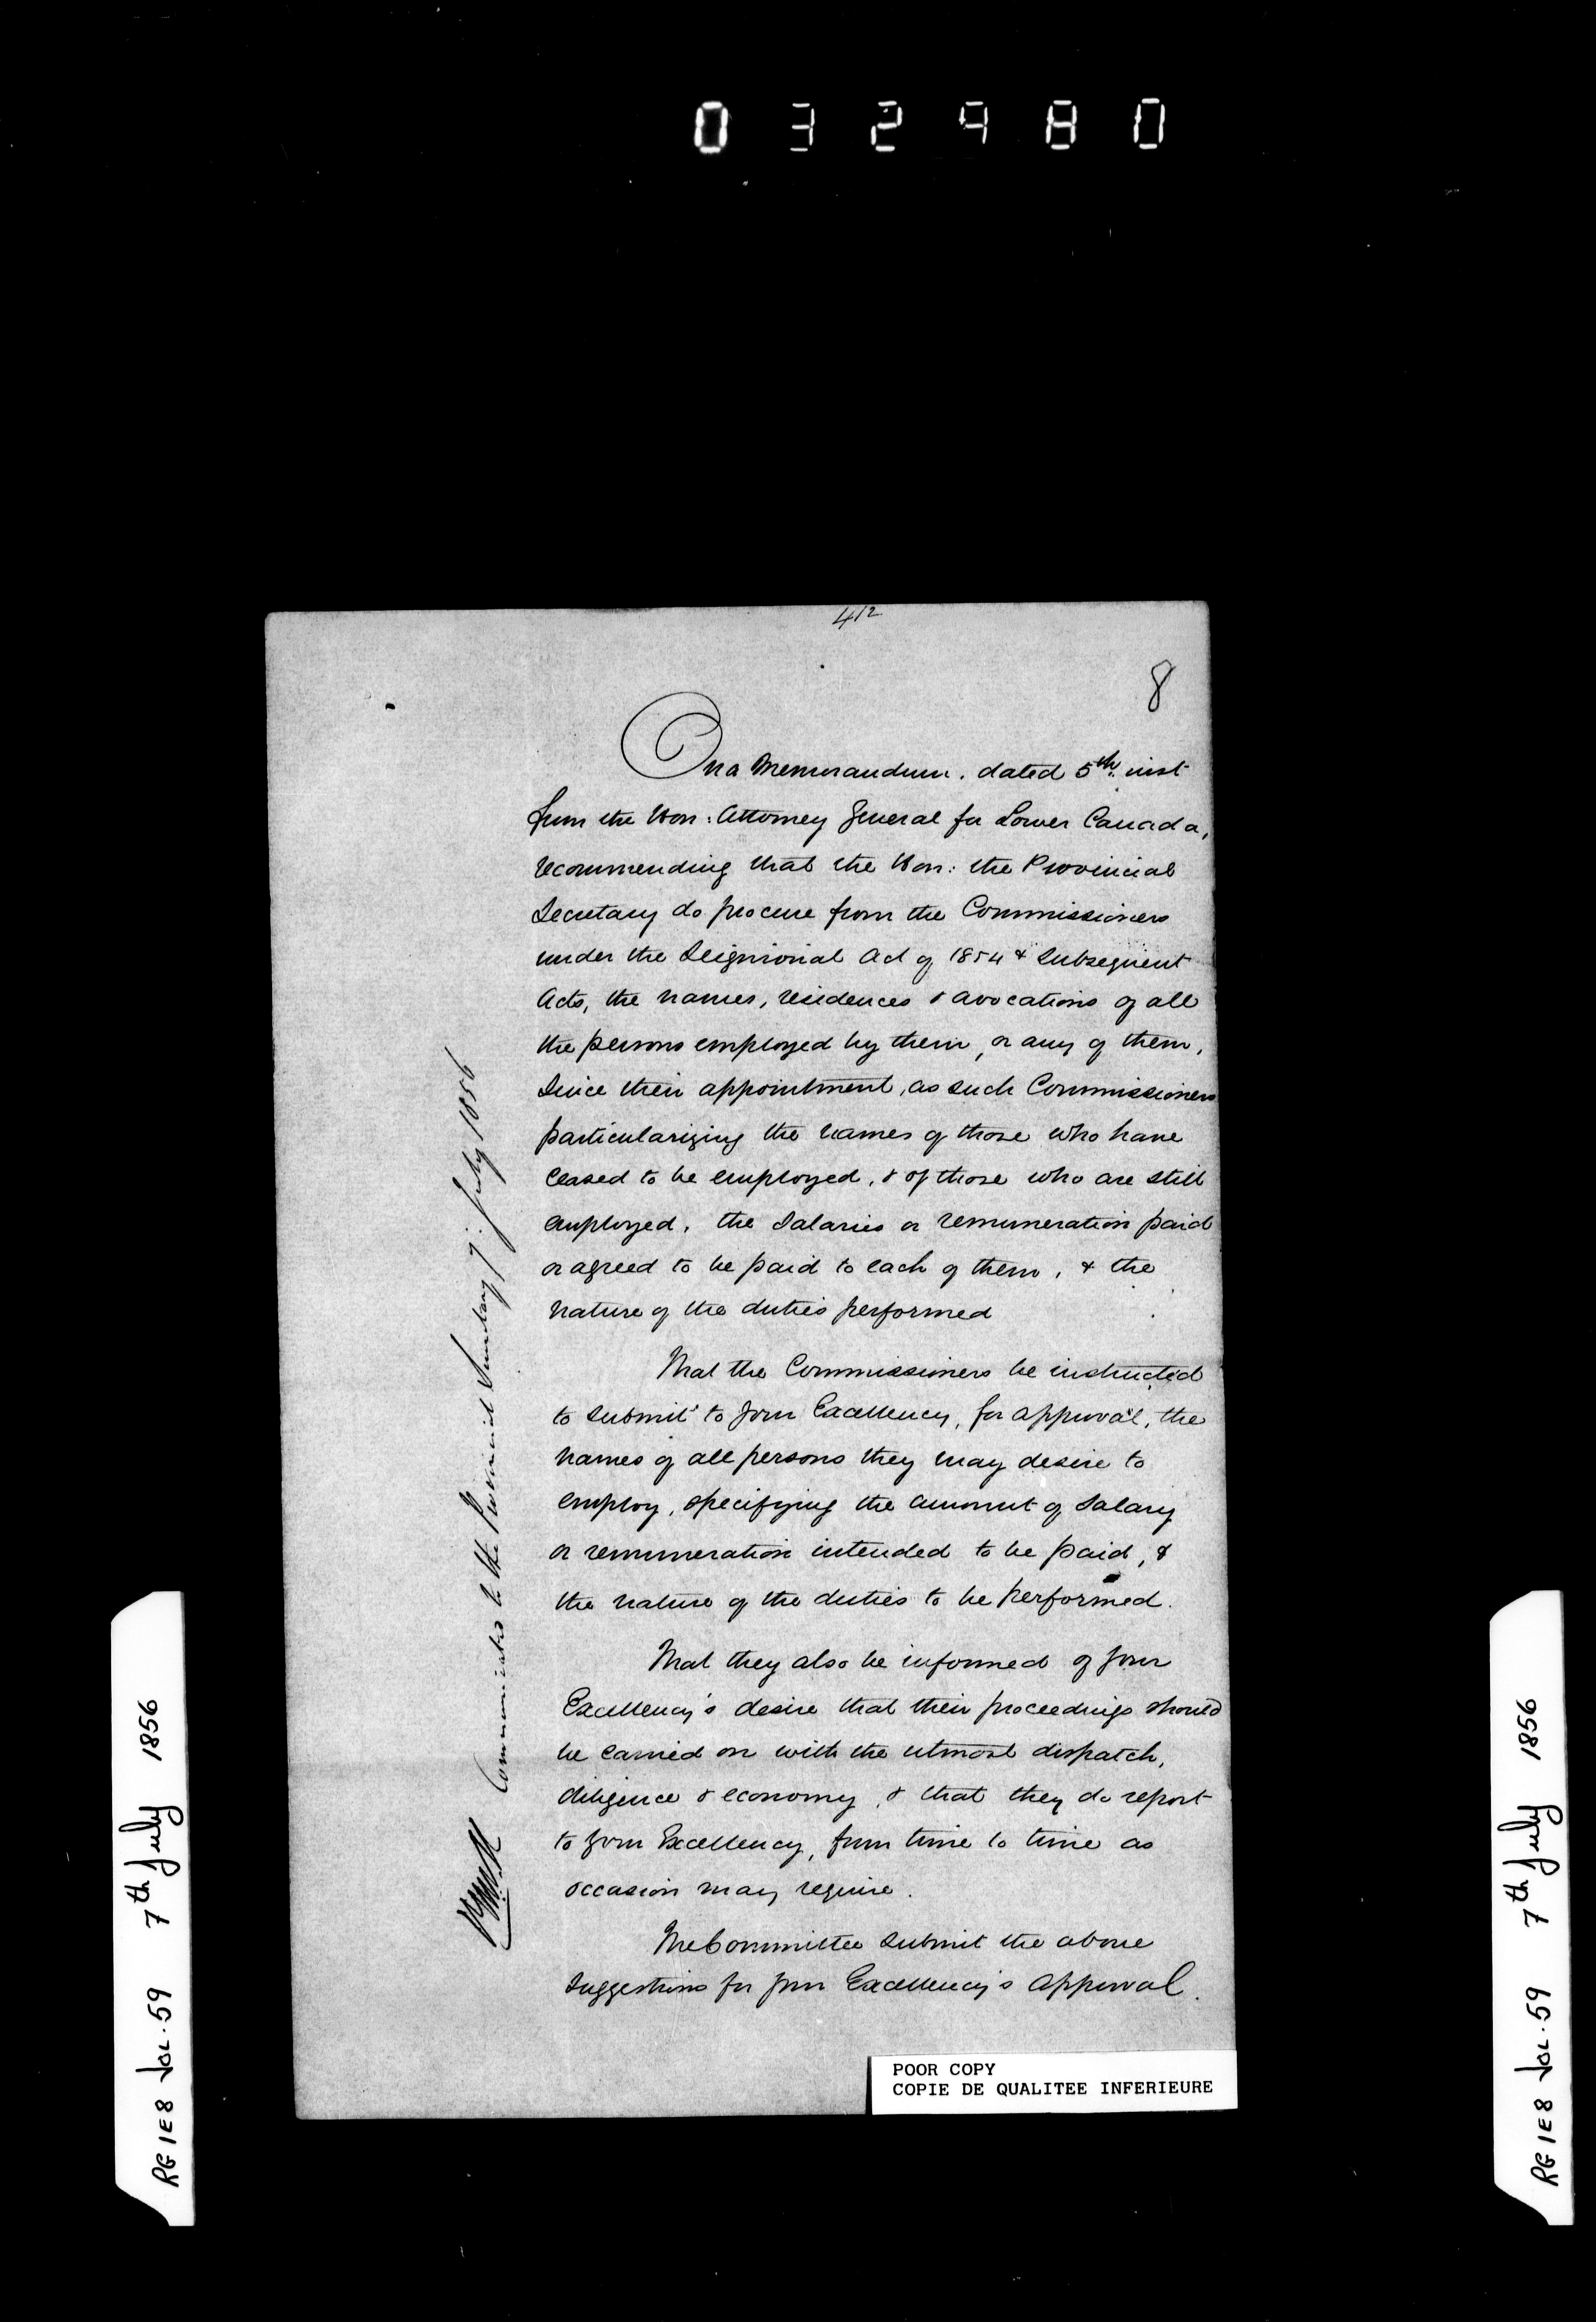 032980
412
8
On a Memorandum, dated 5th inst
from the Hon: Attorney General for Lower Canada,
recommending that the Hon: the Provincial
Secretary do procure from the Commissioners
under the Seigniorial Act of 1854 & subsequent
Acts, the names, residences & avocations of all
the persons employed by them, or any of them,
since their appointment, as such Commissioners
particularizing the names of those who have
ceased to be employed, & of those who are still
employed, the salaries or remuneration paid
or agreed to be paid to each of them, & the
nature of the duties performed
That the Commissioners be instructed
to submit to Your Excellency, for approval, the
names of all persons they may desire to
employ, specifying the amount of salary
or remuneration intended to be paid, &
the nature of the duties to be performed.
That they also be informed of Your
Excellency's desire that their proceedings should
be carried on with the utmost dispatch,
diligence & economy, & that they do report
to Your Excellency, from time to time as
occasion may require.
The Committee submit the above
suggestions for Your Excellency's approval.
Communicated to the Provincial Secretary 7. July 1856
POOR COPY
COPIE DE QUALITEE INFERIEURE
RG 1 E8 Vol. 59 7th July 1856
RG 1 E8 Vol. 59 7th July 1856